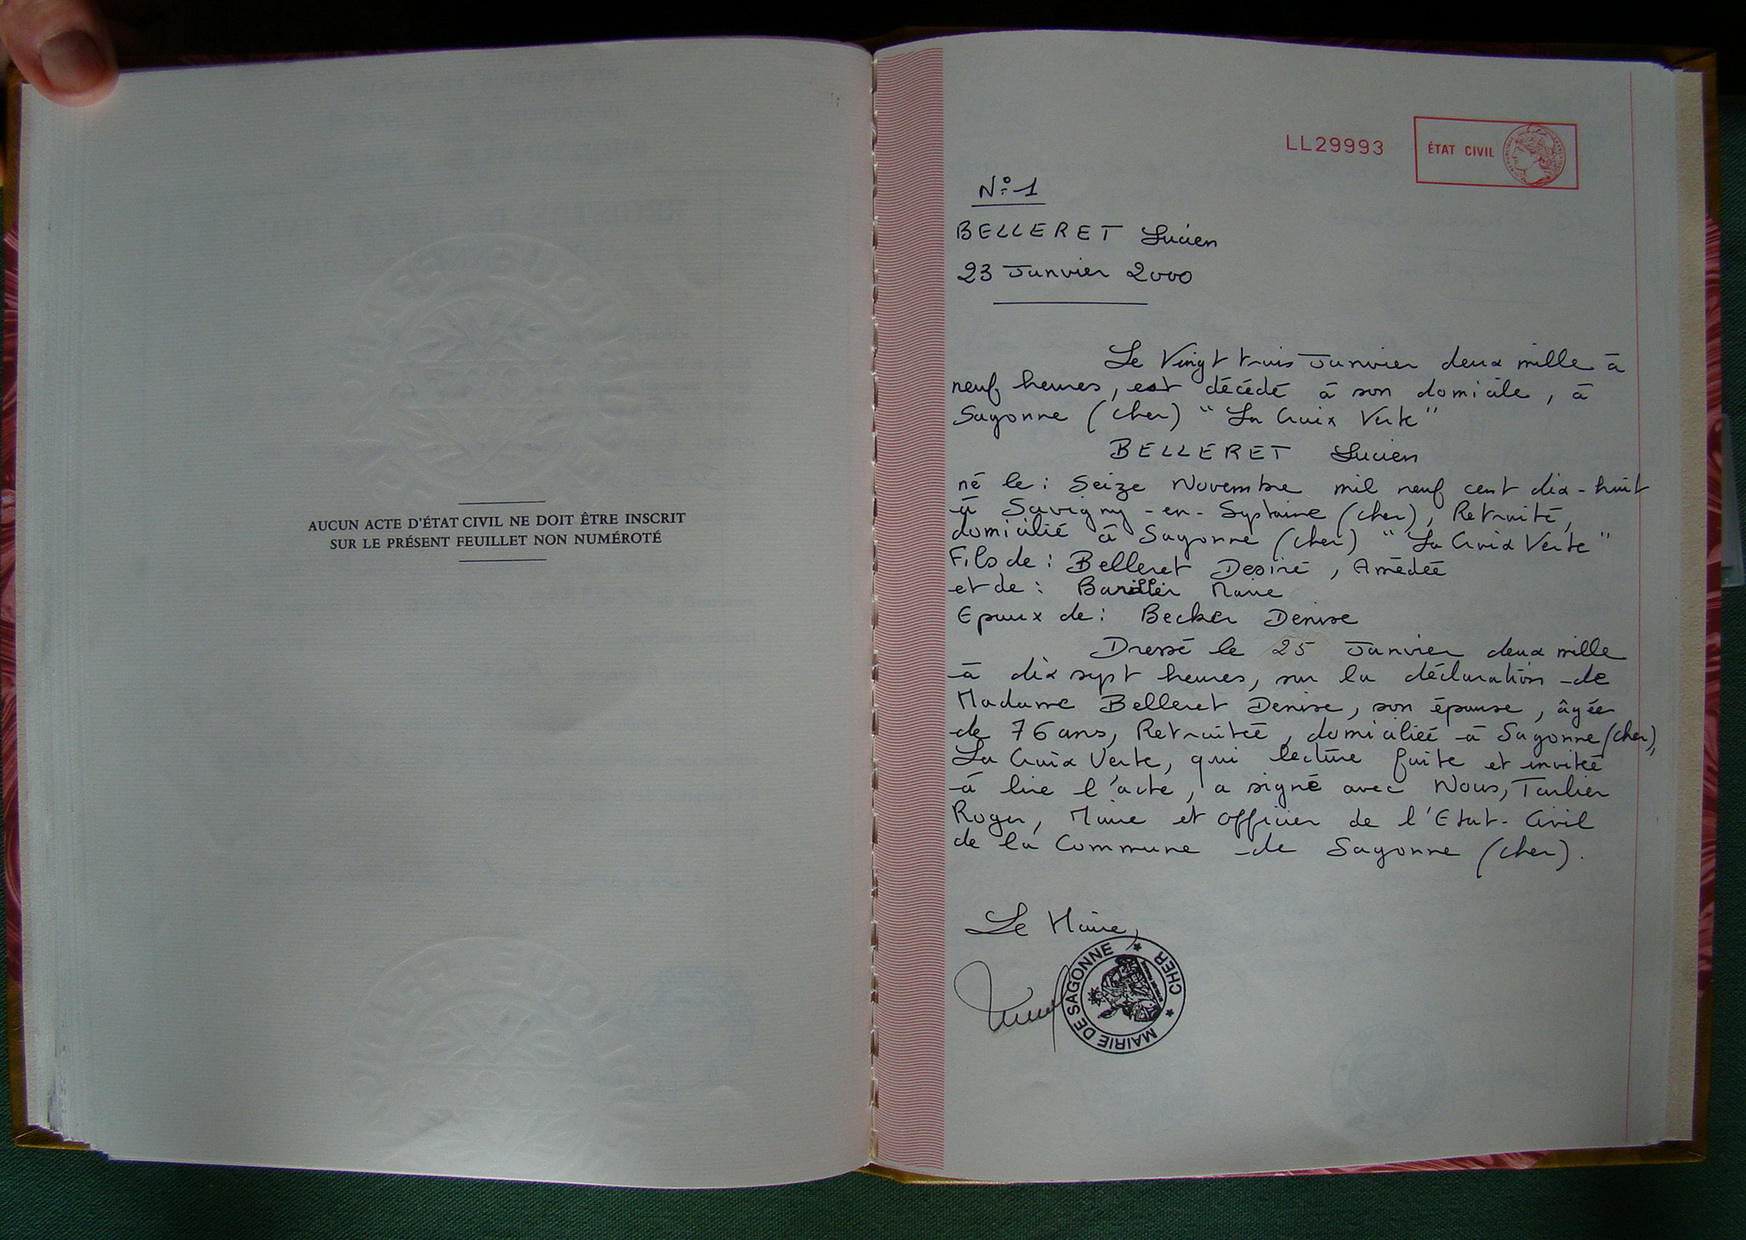 AUCUN ACTE D'ÉTAT CIVIL NE DOIT ÊTRE INSCRIT
SUR LE PRÉSENT FEUILLET NON NUMÉROTÉ
LL29993
ÉTAT CIVIL
N° 1
BELLERET Lucien
23 Janvier 2000
Le Vingt trois Janvier deux mille à
neuf heures, est décédé à son domicile, à
Sagonne (cher) "La Croix Verte"
BELLERET Lucien
né le : Seize Novembre mil neuf cent dix-huit
à Savigny-en-Septaine (cher), Retraité,
domicilié à Sagonne (cher) "La Croix Verte"
Fils de : Belleret Desiré, Amédée
et de : Barillier Marie
Epoux de : Becker Denise
Dressé le 25 Janvier deux mille
à dix sept heures, sur la déclaration de
Madame Belleret Denise, son épouse, âgée
de 76 ans, Retraitée, domiciliée à Sagonne (cher),
La Croix Verte, qui lecture faite et invitée
à lire l'acte, a signé avec Nous,
Roger, Maire et officier de l'Etat-Civil
de la Commune de Sagonne (cher).
Le Maire,
MAIRIE DE SAGONNE
CHER